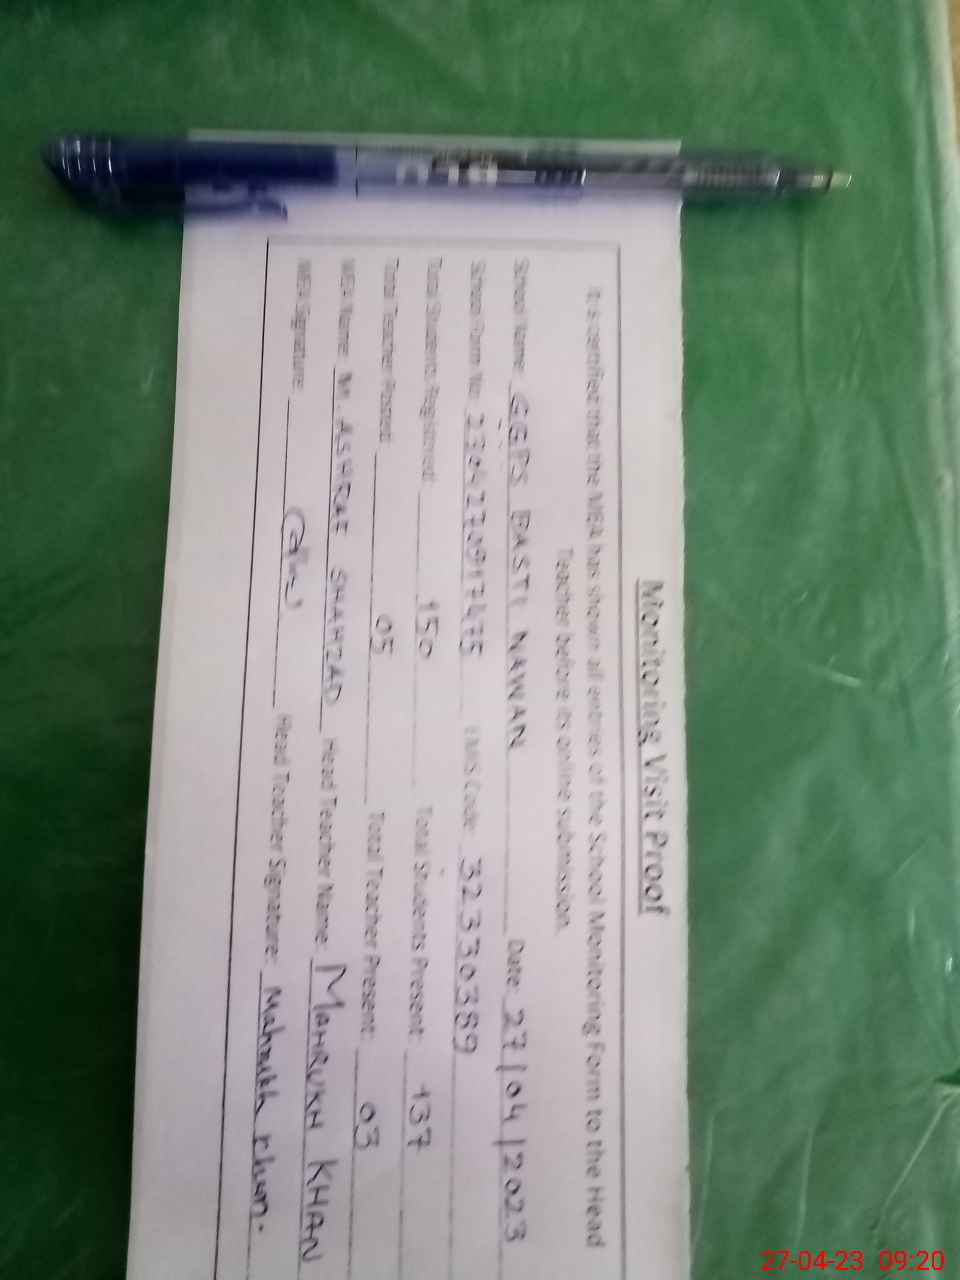 Monitoring Visit Proof
It is certified that the MEA has shown all entries of the School Monitoring Form to the Head
Teacher before its online submission.
School Name: GGPS BASTI NAWAN Date: 27/04/2023
School Form No: 2304270917475 EMIS Code: 32330389
Total Students Registred: 150 Total Students Present: 137
Total Teacher Posted: 05 Total Teacher Present: 03
MEA Name: M. ASHRAF SHAHZAD Head Teacher Name: MAHRUKH KHAN
MEA Signature: Head Teacher Signature: Mahrukh khan.
27-04-23 09:20